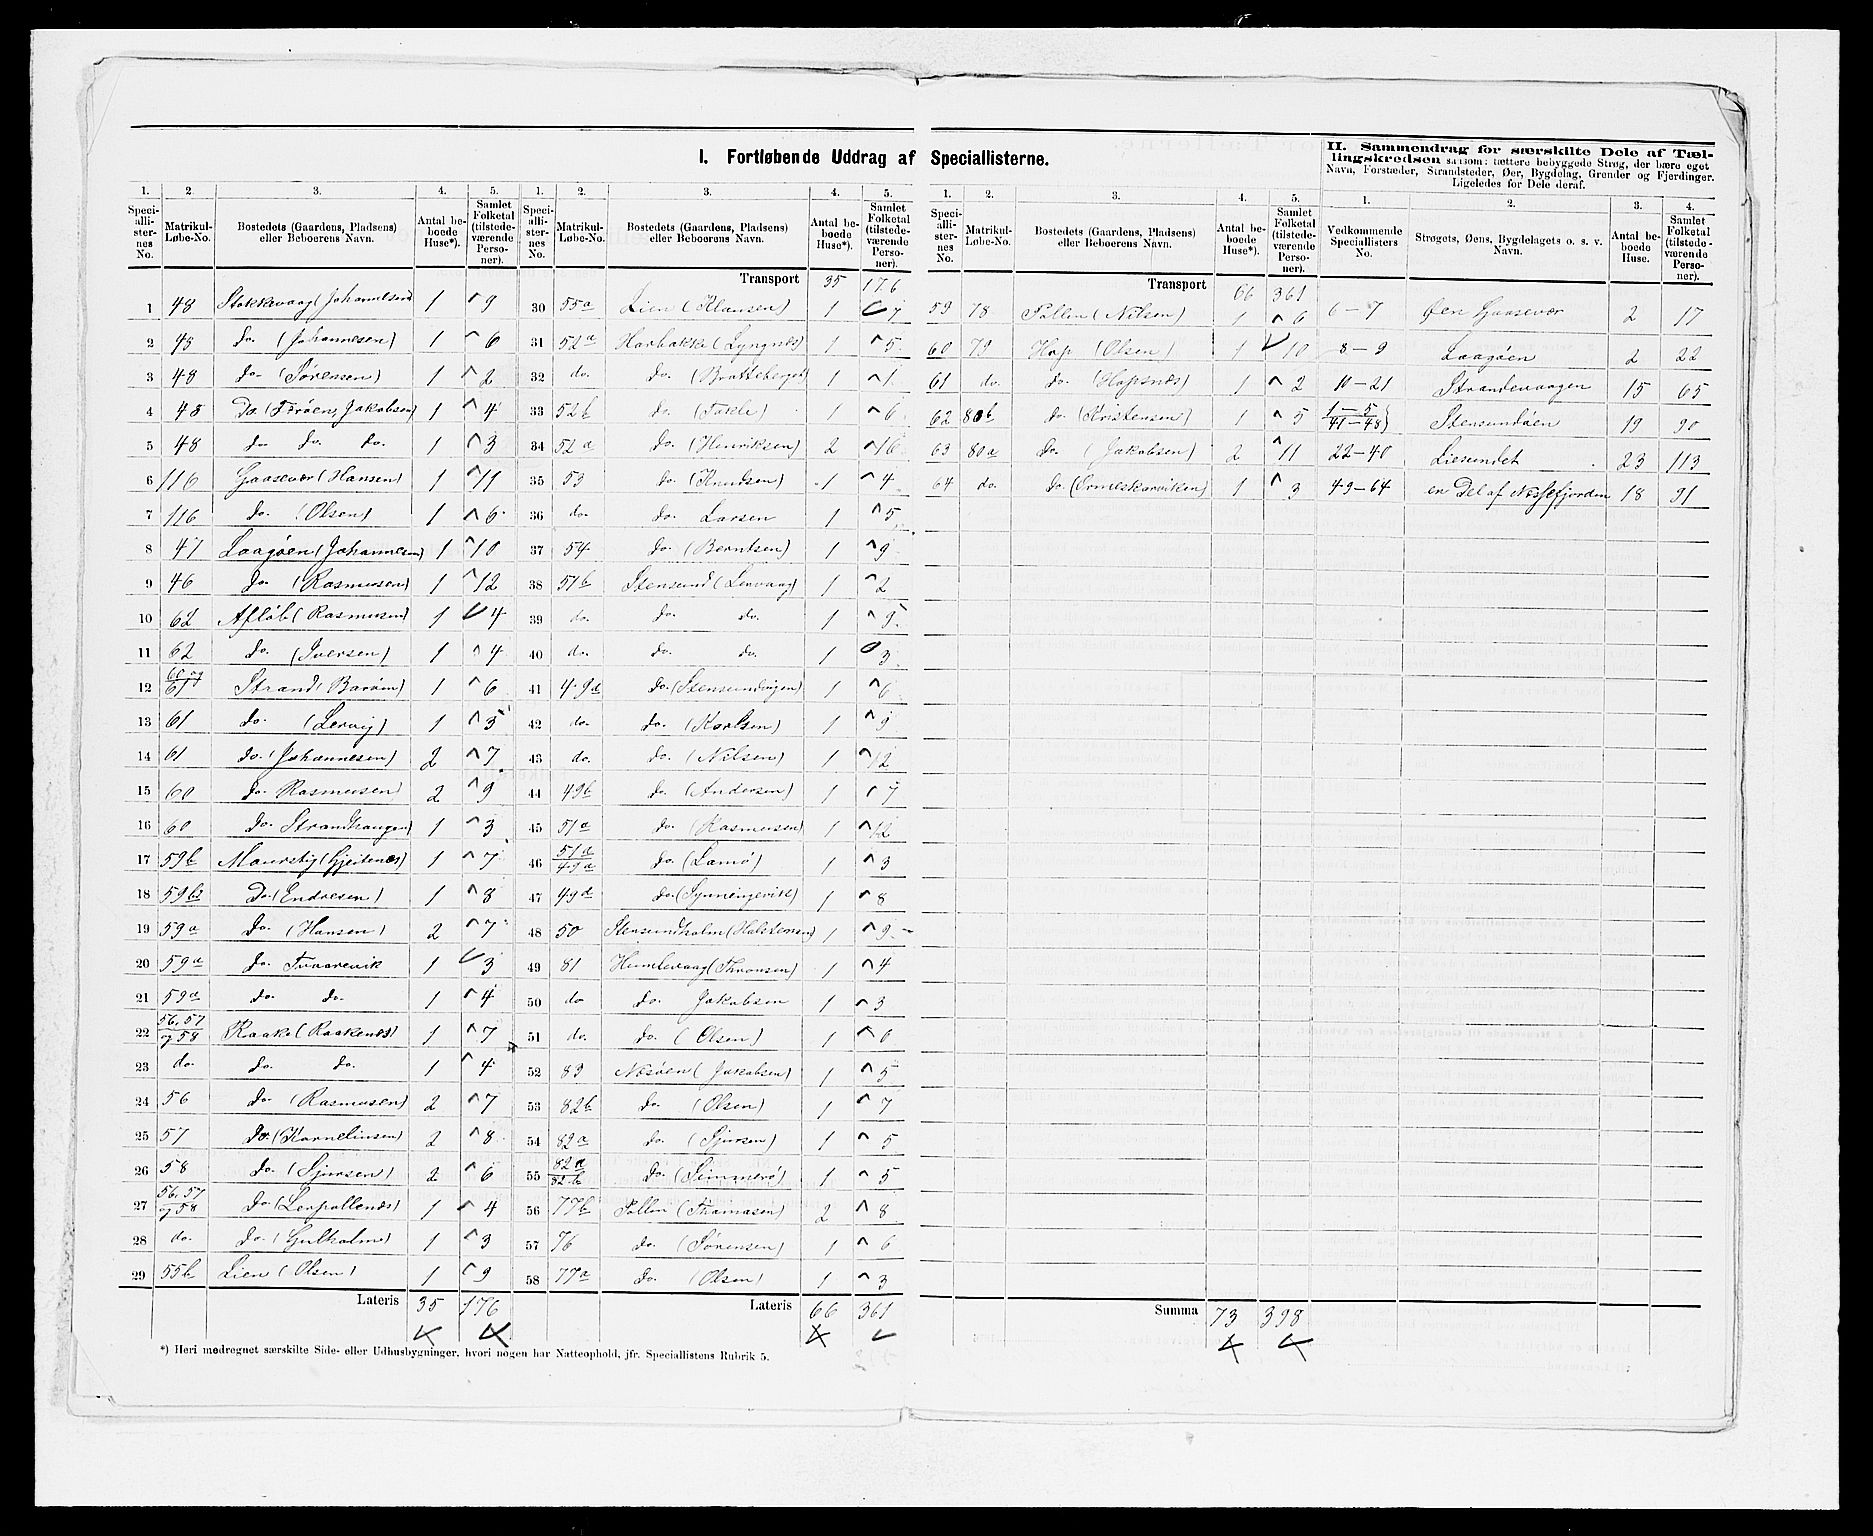 I. Fortløbende Uddrag af Speciallisterne.
II. Sammendrag for særskilte Dele af Tællingskredsen saasom: tættere bebyggede Strøg, der bære eget Navn, Forstæder, Strandsteder, Øer, Bygdelag, Grender og Fjerdinger. Ligeledes for Dele deraf.
1. 2. 3. 4. 5.
Speciallisternes No. Matrikul-Løbe-No. Bostedets (Gaardens, Pladsens) eller Beboerens Navn. Antal beboede Huse*). Samlet Folketal (tilstedeværende Personer).
1 48 Stokkevaag (Johannesen) 1 9
2 48 do. (Johannesen) 1 6
3 48 do. (Sørensen) 1 2
4 48 Do. (Færøen, Jakobsen) 1 4
5 48 do. do. do. 1 3
6 116 Gaasevær (Hansen) 1 11
7 116 do. (Olsen) 1 6
8 47 Laagøen (Johannesen) 1 10
9 46 do. (Rasmusen) 1 12
10 62 Afløb (Rasmusen) 1 4
11 62 do. (Iversen) 1 4
12 60 og 61 Strand (Barøen) 1 6
13 61 do. (Lervig) 1 5
14 61 do. (Johannesen) 2 7
15 60 do. Rasmusen) 2 9
16 60 do. Strandhaugen) 1 3
17 59b Maursty (Gjeitenæs) 1 7
18 59b2 Do. (Endresen) 1 8
19 59a do. (Hansen) 2 7
20 59a do. Tverrevik 1 3
21 59a do. do. 1 4
22 56, 57 og 58 Raake (Raakenæs) 1 7
23 do. do. do. 1 4
24 56 do. (Rasmusen) 2 7
25 57 do. (Kornelinsen) 2 8
26 58 do. (Sjursen) 2 6
27 56, 57 og 58 do. (Lerpollenæs) 1 4
28 do. do. (Gulholm) 1 3
29 55b Lien (Olsen) 1 9
Lateris 35 176
1. 2. 3. 4. 5.
Speciallisternes No. Matrikul-Løbe-No. Bostedets (Gaardens, Pladsens) eller Beboerens Navn. Antal beboede Huse*). Samlet Folketal (tilstedeværende Personer).
Transport 35 176
30 55a Lien (Klausen) 1 7
31 52a Harbakke (Lyngnes) 1 5
32 do. do. (Bratteberget) 1 1
33 52b do. (Takle) 1 6
34 52a do. (Henriksen) 2 16
35 53 do. (Knudsen) 1 4
36 do. do. Larsen 1 5
37 54 do. (Berntsen) 1 9
38 51b Stensund (Lervaag) 1 2
39 do. do. do. 1 9
40 do. do. do. 1 3
41 49d do. (Stensundvigen) 1 6
42 do. do. (Karlsen) 1 9
43 do. do. (Nilsen) 1 12
44 49b do. (Andersen) 1 7
45 51a do. (Rasmusen) 1 12
46 51a 49a do. (Lamø) 1 3
47 49d do. (Synningevik) 1 8
48 50 Stensundholm (Halstensen) 1 9
49 81 Humlevaag (Thronsen) 1 4
50 do do. Jakobsen 1 3
51 do. do. (Olsen) 1 6
52 83 Nesøen (Jakobsen) 1 5
53 82b do. (Olsen) 1 7
54 82a do. (Sjursen) 1 5
55 82a 82b do. (Simmerø) 1 5
56 77b Pollen (Thomasen) 2 8
57 76 do. (Sørensen) 1 6
58 77a do. (Olsen) 1 3
Lateris 66 361
1. 2. 3. 4. 5.
Speciallisternes No. Matrikul-Løbe-No. Bostedets (Gaardens, Pladsens) eller Beboerens Navn. Antal beboede Huse*). Samlet Folketal (tilstedeværende Personer).
Transport 66 361
59 78 Pollen (Nilsen) 1 6
60 79 Hop (Olsen) 1 10
61 do. do. (Hopsnes) 1 2
62 80b do. (Kristensen) 1 5
63 80a do. (Jakobsen) 2 11
64 do. do. (Ormeskarviken) 1 3
Summa 73 398
1. 2. 3. 4.
Vedkommende Speciallisters No. Strøgets, Øens, Bygdelagets o. s. v. Navn. Antal beboede Huse. Samlet Folketal (tilstedeværende Personer).
6 – 7 Øen Gaasevær 2 17
8 – 9 Laagøen 2 22
10 – 21 Strandevaagen 15 65
1 – 5 41 – 48} Stensundøen 19 90
22 – 40 Liesundet 23 113
49 – 64 en Del af Nessefjorden 18 91
*) Heri medregnet særskilte Side- eller Udhusbygninger, hvori nogen har Natteophold, jfr. Speciallistens Rubrik 5.